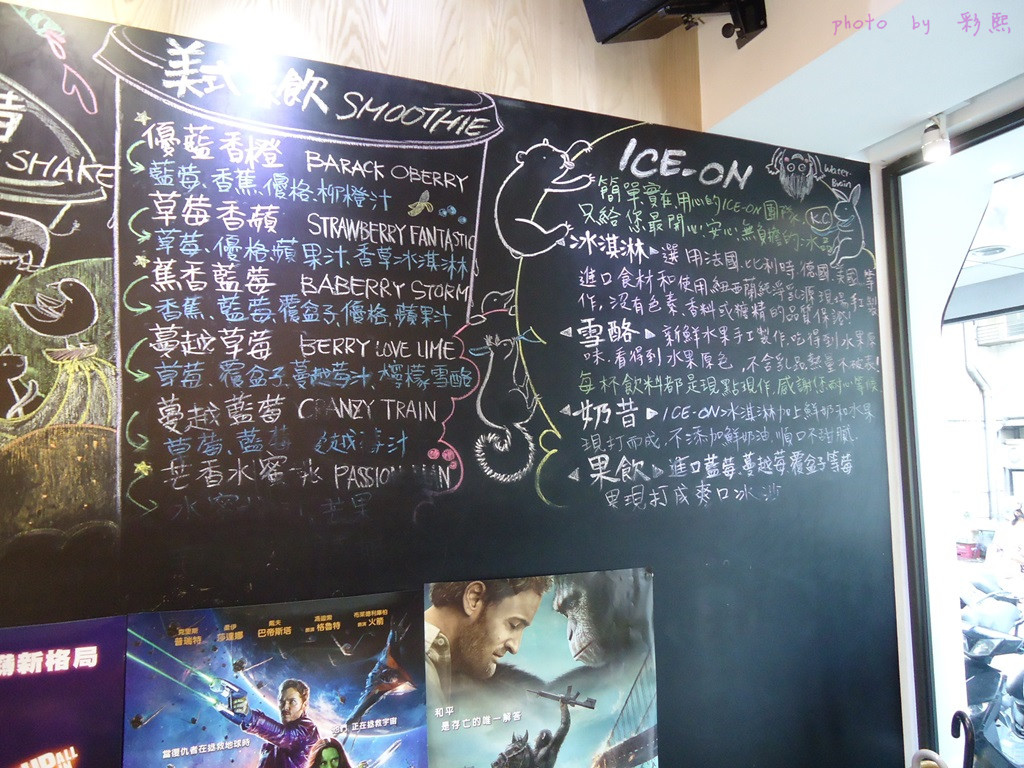 photo by 彩熙
昔
SHAKE
美式果飲 SMOOTHIE
優藍香橙 BARACK OBERRY
藍莓、香蕉、優格、柳橙汁
草莓香蘋 STRAWBERRY FANTASTIC
草莓、優格、蘋果汁、香草冰淇淋
蕉香藍莓 BABERRY STORM
香蕉、藍莓、覆盆子、優格、蘋果汁
蔓越草莓 BERRY LOVE LIME
草莓、覆盆子、蔓越莓汁、檸檬雪酪
蔓越藍莓 CRANZY TRAIN
藍莓
芒香水蜜 PASSION
水蜜 芒果
ICE-ON
Water Brain
K.C
簡單實在用心的ICE-ON團隊
只給您最開心、安心、無負擔的冰品
冰淇淋 選用法國、比利時、德國、美國等
進口食材和使用紐西蘭純淨乳源現場手工製
作,沒有色素、香料或糖精的品質保證!
雪酪 新鮮水果手工製作,吃得到水果原
味,看得到水果原色,不含乳品熱量不破表!
每杯飲料都是現點現作,感謝您耐心等候
奶昔 ICE-ON冰淇淋加上鮮奶和水果
現打而成,不添加鮮奶油,順口不甜膩.
果飲 進口藍莓、蔓越莓、覆盆子等莓
果現打成爽口冰沙
新格局
UP ALL
克里斯 普瑞特
柔伊 莎達娜
戴夫 巴帝斯塔
馮迪索 格魯特
布萊德利庫柏 火箭
正在拯救宇宙
當復仇者在拯救地球時
和平
是存亡的唯一解答